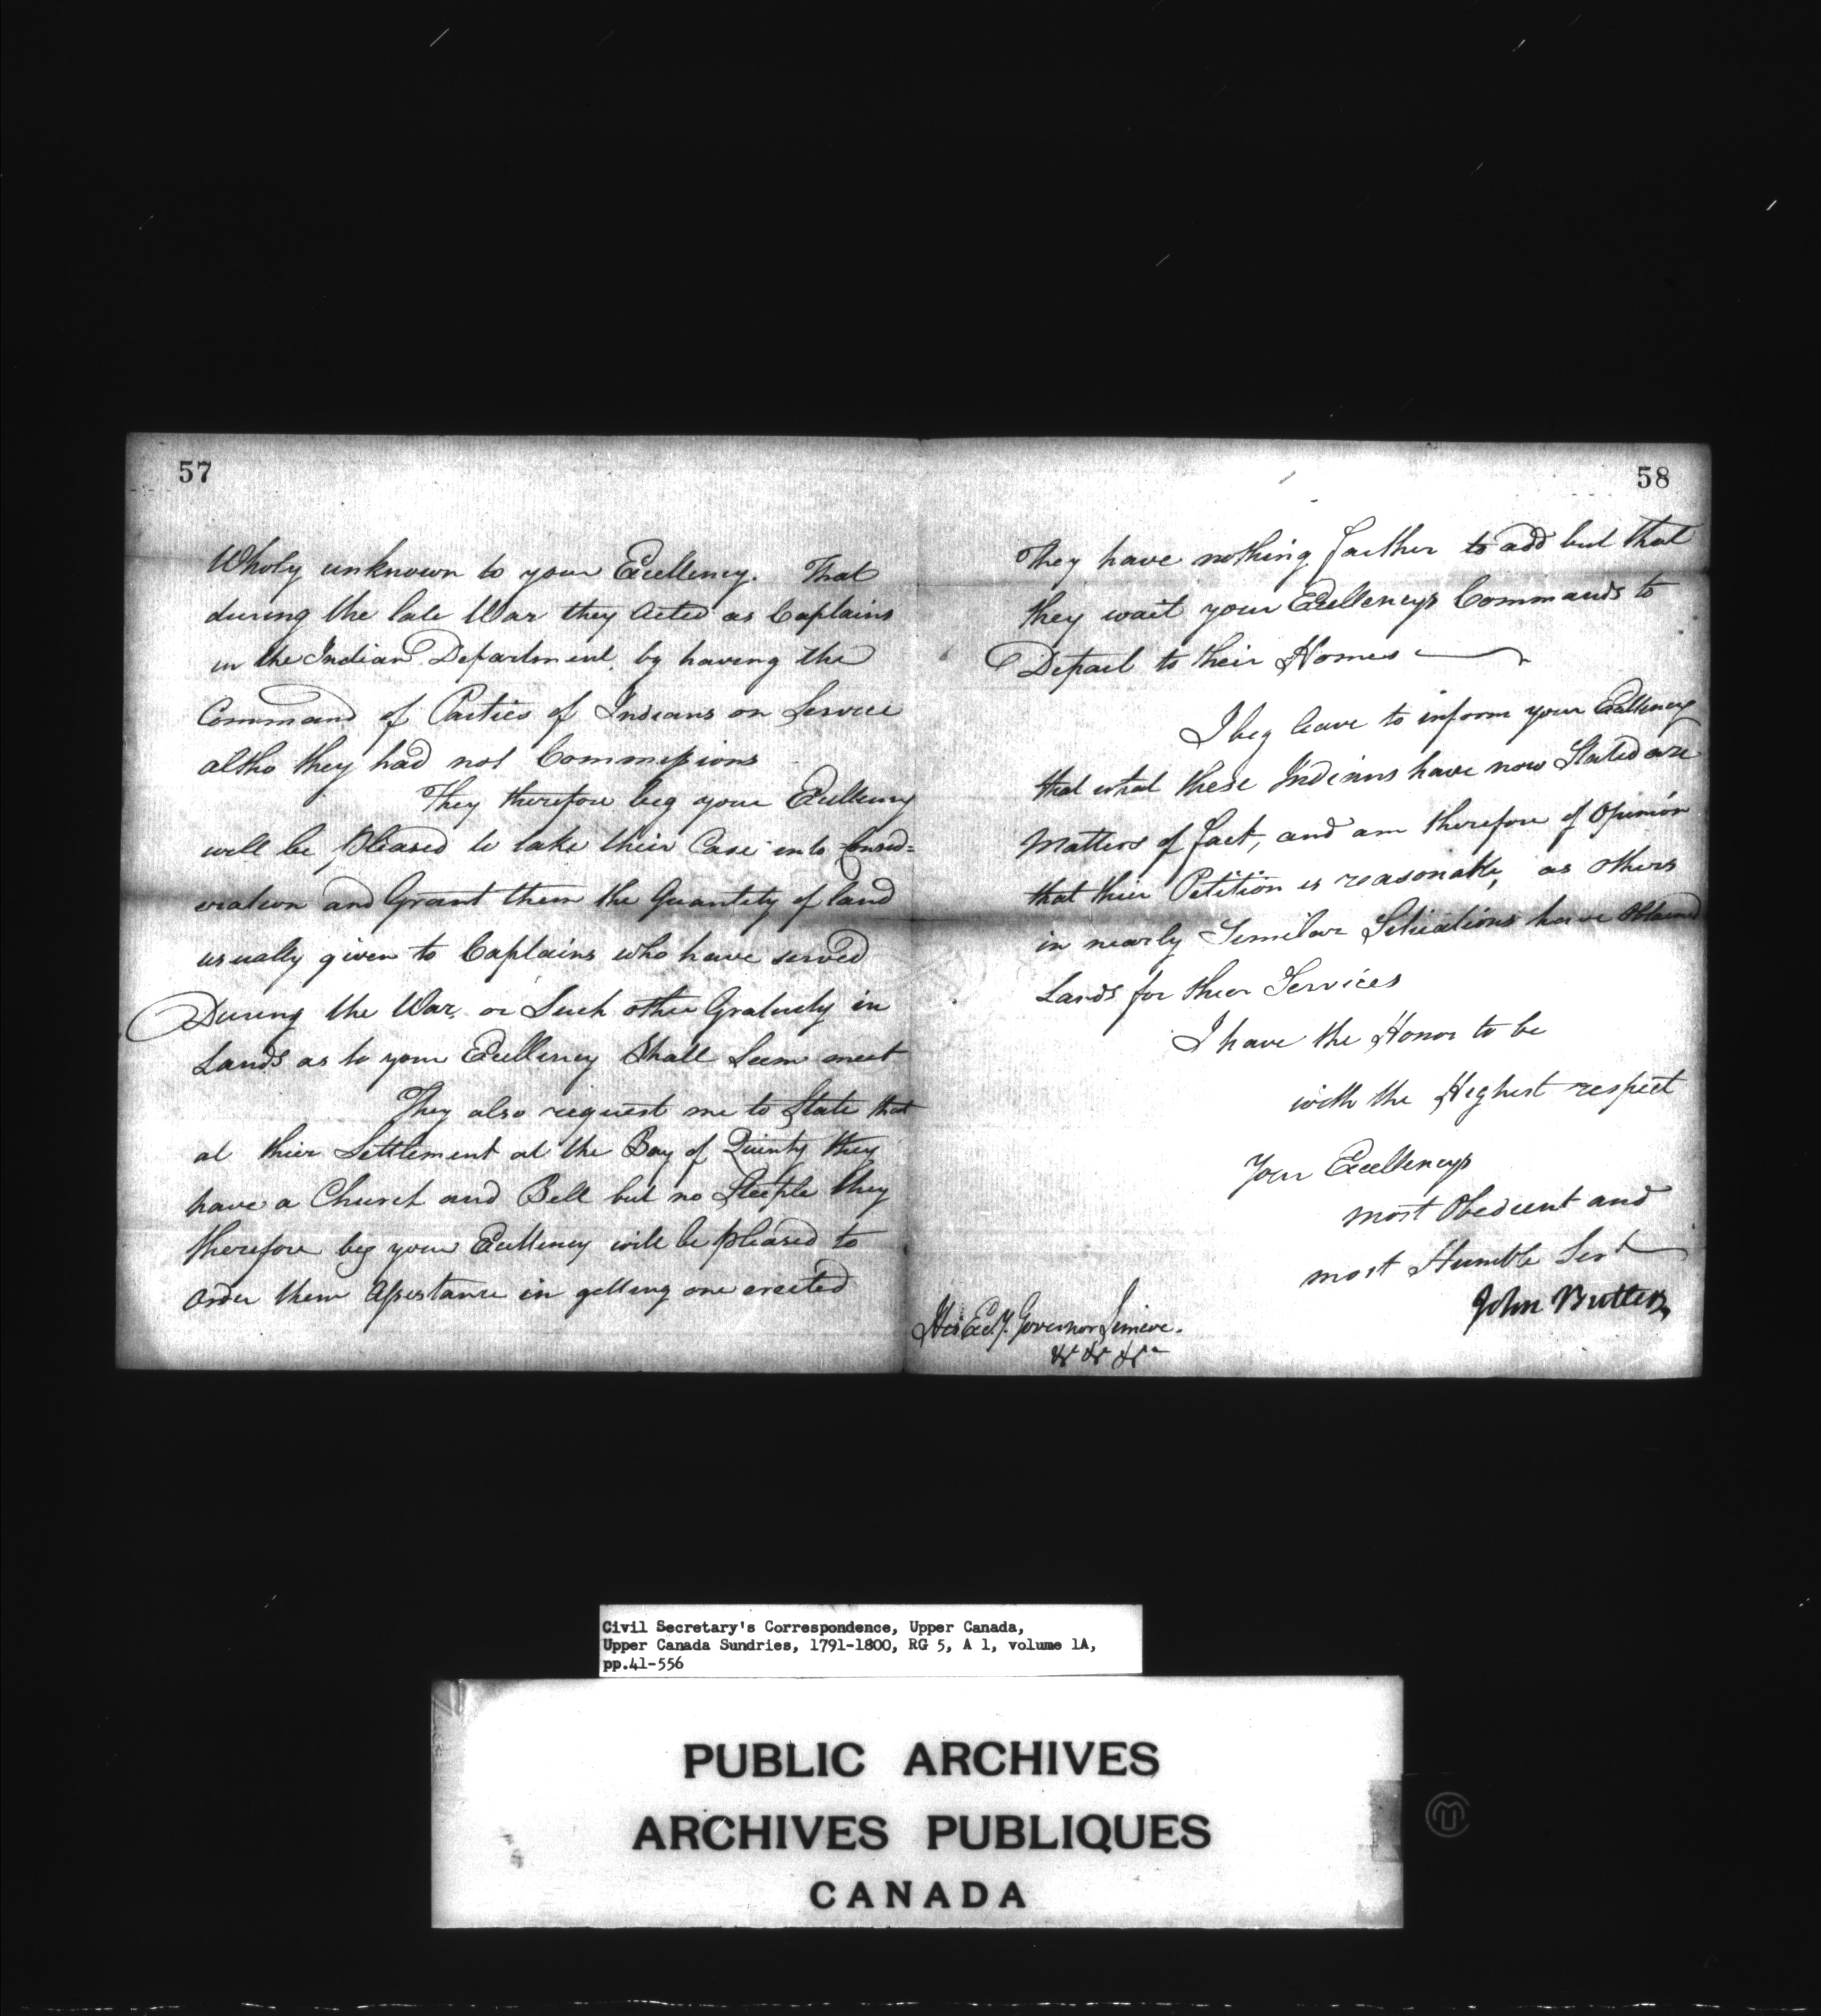 57
Wholy unknown to your Excellency. That
during the late War they acted as Captains
in the Indian Department by having the
Command of Parties of Indians on Service
altho they had not Commissions
They therefore beg your Excellency
will be pleased to take their Case into Consid=
eration and Grant them the Quantity of land
usually given to Captains who have served
During the War, or Such other Gratuity in
Lands as to your Excellency Shall Seem meet
They also request me to State that
at thier Settlement at the Bay of Quinty they
have a Church and Bell but no Steeple they
therefore beg your Excellency will be pleased to
order them Assistance in getting one erected
58
They have nothing farther to add but that
they wait your Excellencys Commands to
Depart to their Homes
I beg leave to inform your Excellency
that what these Indians have now Stated are
Matters of fact, and am therefore of Opinion
that thier Petition is reasonable, as others
in nearly Similar Situations have Obtained
Lands for thier Services
I have the Honor to be
with the Highest respect
Your Excellencys
most Obedient and
most Humble Sert
John Butler
His Excy. Governor Simcoe.
&c &c &ca
Civil Secretary's Correspondence, Upper Canada,
Upper Canada Sundries, 1791-1800, RG 5, A 1, volume 1A,
pp.41-556
PUBLIC ARCHIVES
ARCHIVES PUBLIQUES
CANADA